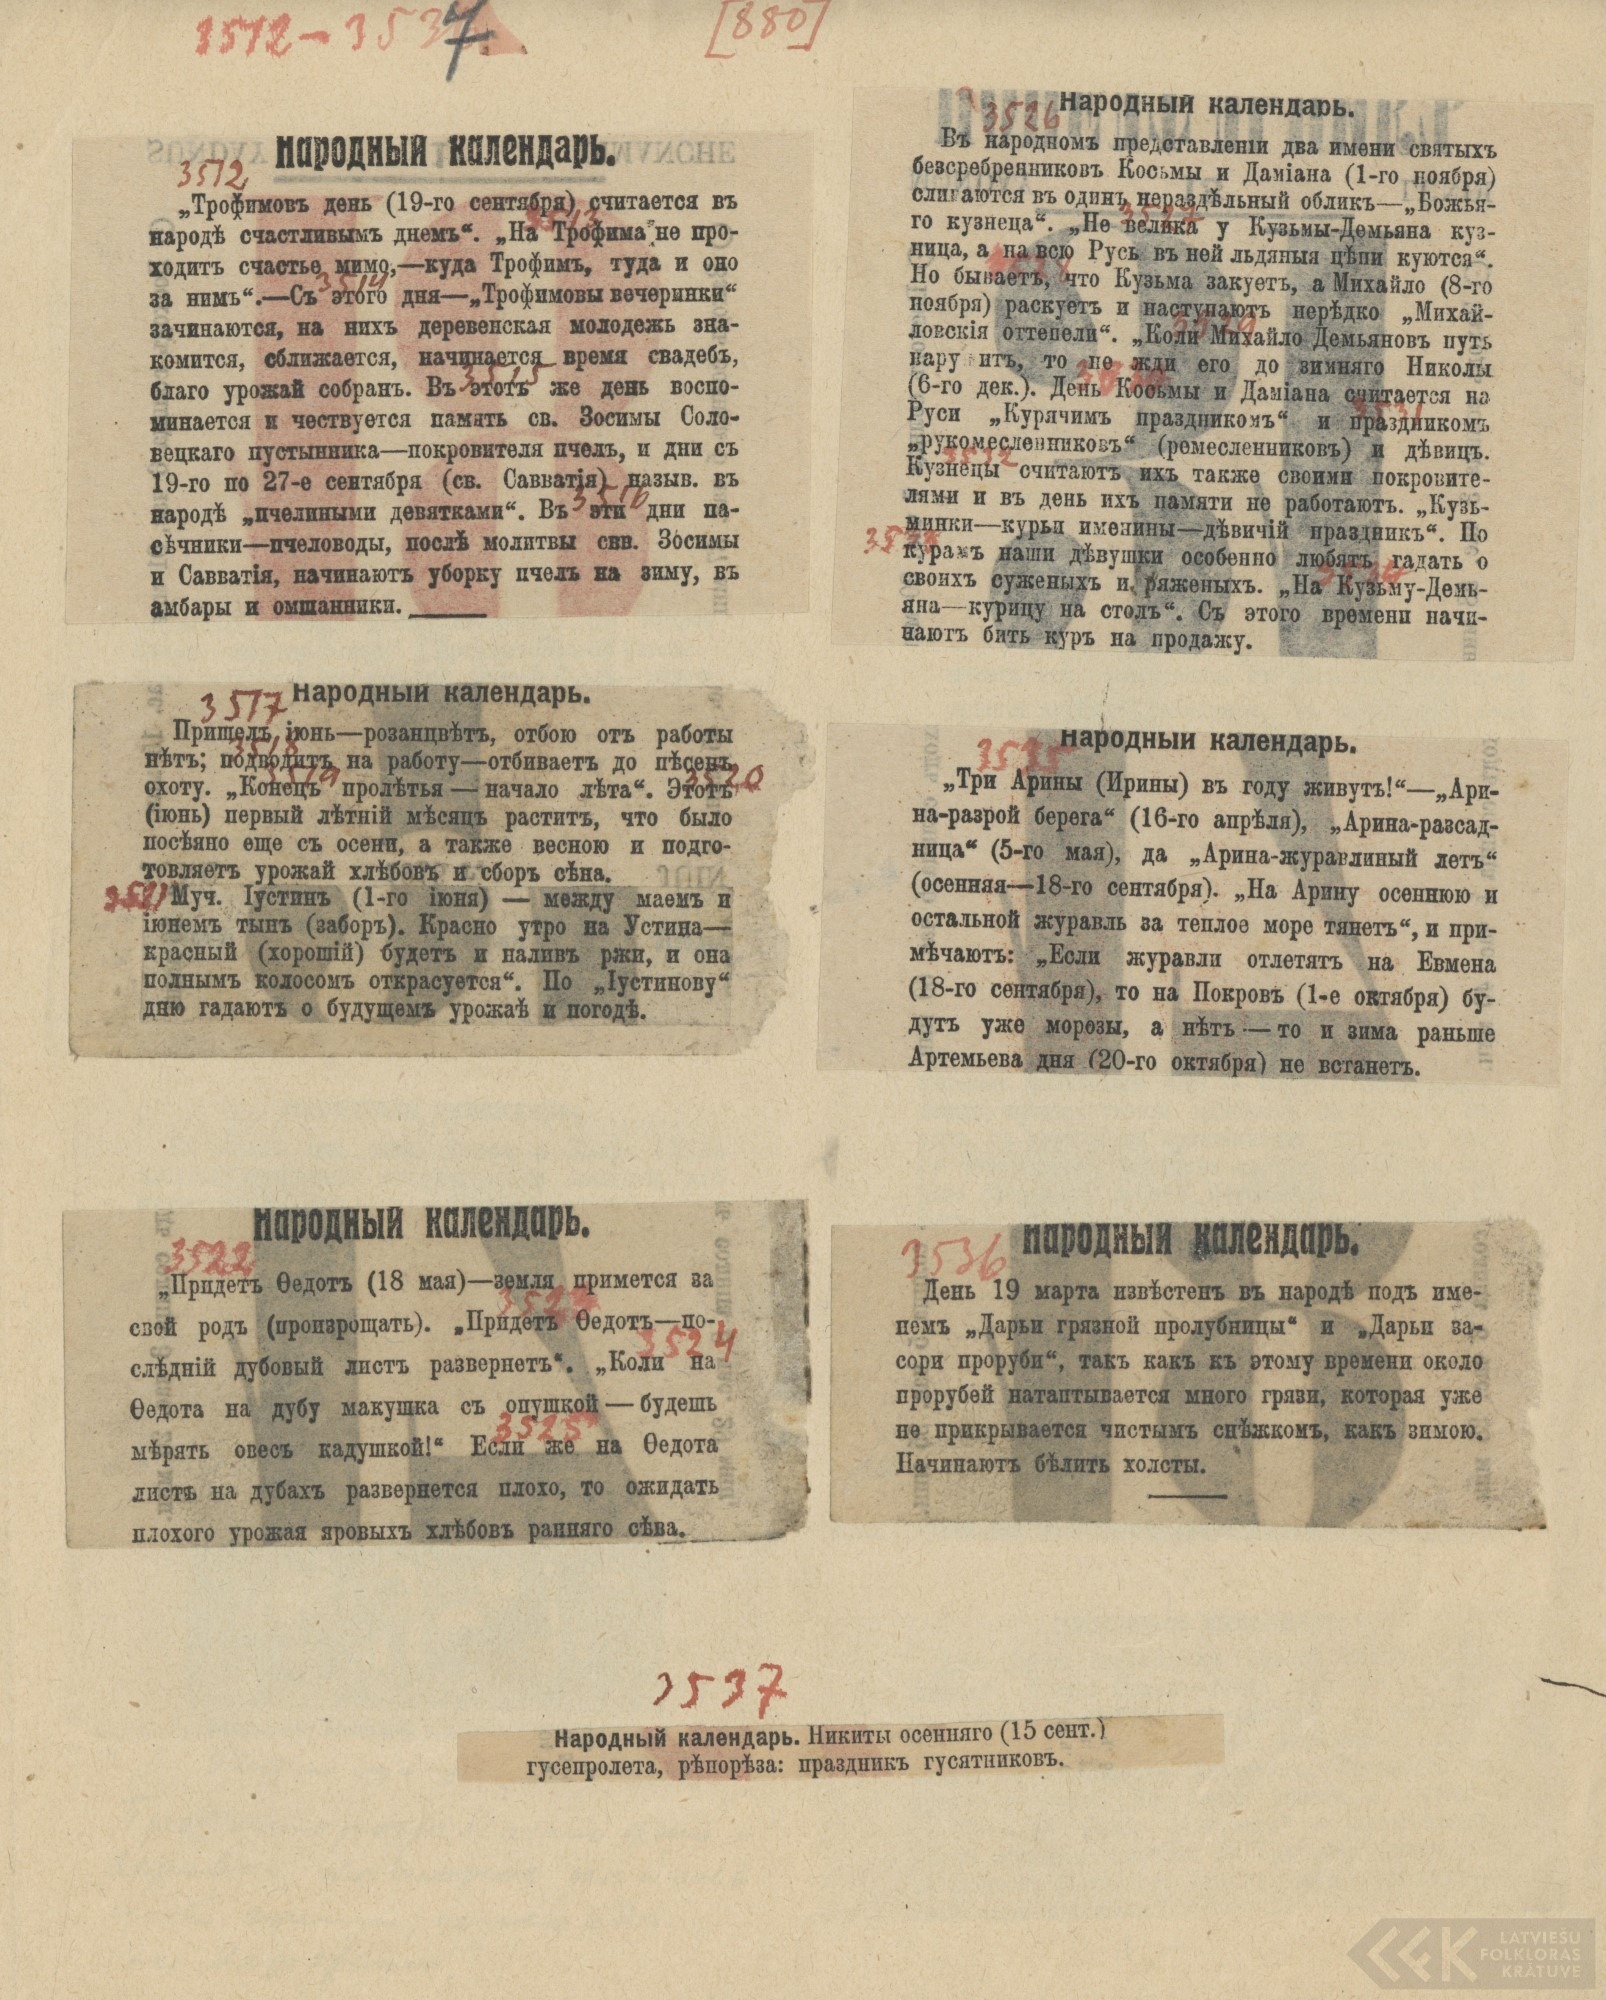 3512-3537
[880]
Народный календарь.
3512
„Трофимовъ день (19-го сентября) считается въ
3513
народѣ счастливымъ днемъ“. „На Трофима не про-
ходитъ счастье мимо,—куда Трофимъ, туда и оно
3514
за нимъ“.—Съ этого дня—„Трофимовы вечеринки“
зачинаются, на нихъ деревенская молодежь зна-
комится, сближается, начинается время свадебъ,
3515
благо урожай собранъ. Въ этотъ же день воспо-
минается и чествуется память св. Зосимы Соло-
вецкаго пустынника—покровителя пчелъ, и дни съ
19-го по 27-е сентября (св. Савватія) назыв. въ
3516
народѣ „пчелиными девятками“. Въ эти дни па-
сѣчники—пчеловоды, послѣ молитвы свв. Зосимы
и Савватія, начинаютъ уборку пчелъ на зиму, въ
амбары и омшанники.
Народный календарь.
3517
Пришелъ іюнь—розанцвѣтъ, отбою отъ работы
3518
нѣтъ; подводитъ на работу—отбиваетъ до пѣсенъ
3519
3520
охоту. „Конецъ пролѣтья — начало лѣта“. Этотъ
(іюнь) первый лѣтній мѣсяцъ раститъ, что было
посѣяно еще съ осени, а также весною и подго-
товляетъ урожай хлѣбовъ и сборъ сѣна.
3521
Муч. Іустинъ (1-го іюня) — между маемъ и
іюнемъ тынъ (заборъ). Красно утро на Устина—
красный (хорошій) будетъ и наливъ ржи, и она
полнымъ колосомъ открасуется“. По „Іустинову“
дню гадаютъ о будущемъ урожаѣ и погодѣ.
Народный календарь.
3522
„Придетъ Ѳедотъ (18 мая)—земля примется за
3523
свой родъ (произрощать). „Придетъ Ѳедотъ—по-
3524
слѣдній дубовый листъ развернетъ“. „Коли на
Ѳедота на дубу макушка съ опушкой — будешь
3525
мѣрять овесъ кадушкой!“ Если же на Ѳедота
листъ на дубахъ развернется плохо, то ожидать
плохого урожая яровыхъ хлѣбовъ ранняго сѣва.
Народный календарь.
3526
Въ народномъ представленіи два имени святыхъ
безсребренниковъ Косьмы и Даміана (1-го ноября)
сливаются въ одинъ нераздѣльный обликъ—„Божья-
3527
го кузнеца“. „Не велика у Кузьмы-Демьяна куз-
ница, а на всю Русь въ ней льдяныя цѣпи куются“.
Но бываетъ, что Кузьма закуетъ, а Михайло (8-го
ноября) раскуетъ и наступаютъ нерѣдко „Михай-
3529
ловскія оттепели“. „Коли Михайло Демьяновъ путь
нарушитъ, то не жди его до зимняго Николы
(6-го дек.). День Косьмы и Даміана считается на
3531
Руси „Курячимъ праздникомъ“ и праздникомъ
„рукомесленниковъ“ (ремесленниковъ) и дѣвицъ.
3532
Кузнецы считаютъ ихъ также своими покровите-
лями и въ день ихъ памяти не работаютъ. „Кузь-
минки—курьи именины—дѣвичій праздникъ“. По
курамъ наши дѣвушки особенно любятъ гадать о
своихъ суженыхъ и ряженыхъ. „На Кузьму-Демь-
яна—курицу на столъ“. Съ этого времени начи-
наютъ бить куръ на продажу.
Народный календарь.
3535
„Три Арины (Ирины) въ году живутъ!“—„Ари-
на-разрой берега“ (16-го апрѣля), „Арина-разсад-
ница“ (5-го мая), да „Арина-журавлиный летъ“
(осенняя—18-го сентября). „На Арину осеннюю и
остальной журавль за теплое море тянетъ“, и при-
мѣчаютъ: „Если журавли отлетятъ на Евмена
(18-го сентября), то на Покровъ (1-е октября) бу-
дутъ уже морозы, а нѣтъ — то и зима раньше
Артемьева дня (20-го октября) не встанетъ.
Народный календарь.
3536
День 19 марта извѣстенъ въ народѣ подъ име-
немъ „Дарьи грязной пролубницы“ и „Дарьи за-
сори проруби“, такъ какъ къ этому времени около
прорубей натаптывается много грязи, которая уже
не прикрывается чистымъ снѣжкомъ, какъ зимою.
Начинаютъ бѣлить холсты.
3537
Народный календарь. Никиты осенняго (15 сент.)
гусепролета, рѣпорѣза: праздникъ гусятниковъ.
LATVIEŠU
FOLKLORAS
KRĀTUVE